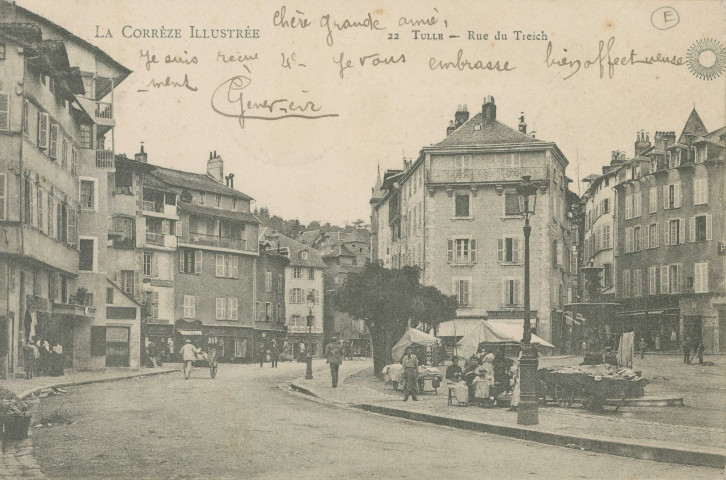 LA CORRÈZE ILLUSTRÉE
22 TULLE — Rue du Treich
E
Chère grande amie,
Je suis reçue 4e Je vous embrasse bien affectueuse
-ment
Geneviève